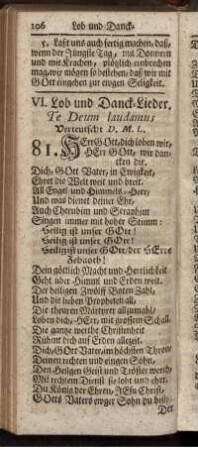 106 Lob und Danck-
5. Laſt uns auch fertig machen, daß,
wenn der Jüngſte Tag, mit Donnern
und mit Krachen, plötzlich einbrechen
mag, wir mögen ſo beſtehen, daß wir mit
GOtt eingehen zur ewgen Seligkeit.
VI. Lob und Danck-Lieder.
Te Deum laudamus
Verteutſcht D. M. L.
81. HErr GOtt, dich loben wir,
HErr GOtt, wir dan-
cken dir.
Dich, GOtt Vater, in Ewigkeit,
Ehret die Welt weit und breit.
All Engel und Himmels-Heer,
Und was dienet deiner Ehr,
Auch Cherubim und Seraphim
Singen immer mit hoher Stimm:
Heilig iſt unſer GOtt!
Heilig iſt unſer GOtt!
Heilig iſt unſer GOtt, der HErre
Zebaoth!
Dein göttlich Macht und Herrlichkeit
Geht über Himml und Erden weit.
Der heiligen Zwölff Boten Zahl,
Und die lieben Propheten all,
Die theuren Märtyrer allzumahl,
Loben dich, HErr, mit groſſem Schall.
Die gantze werthe Chriſtenheit
Rühmt dich auf Erden allezeit.
Dich, GOtt Vater, im höchſten Throne
Deinen rechten und eingen Sohn,
Den Heilgen Geiſt und Tröſter werth
Mit rechtem Dienſt ſie lobt und ehrt.
Du König der Ehren, JEſu Chriſt,
GOtts Vaters ewger Sohn du biſt,
Der